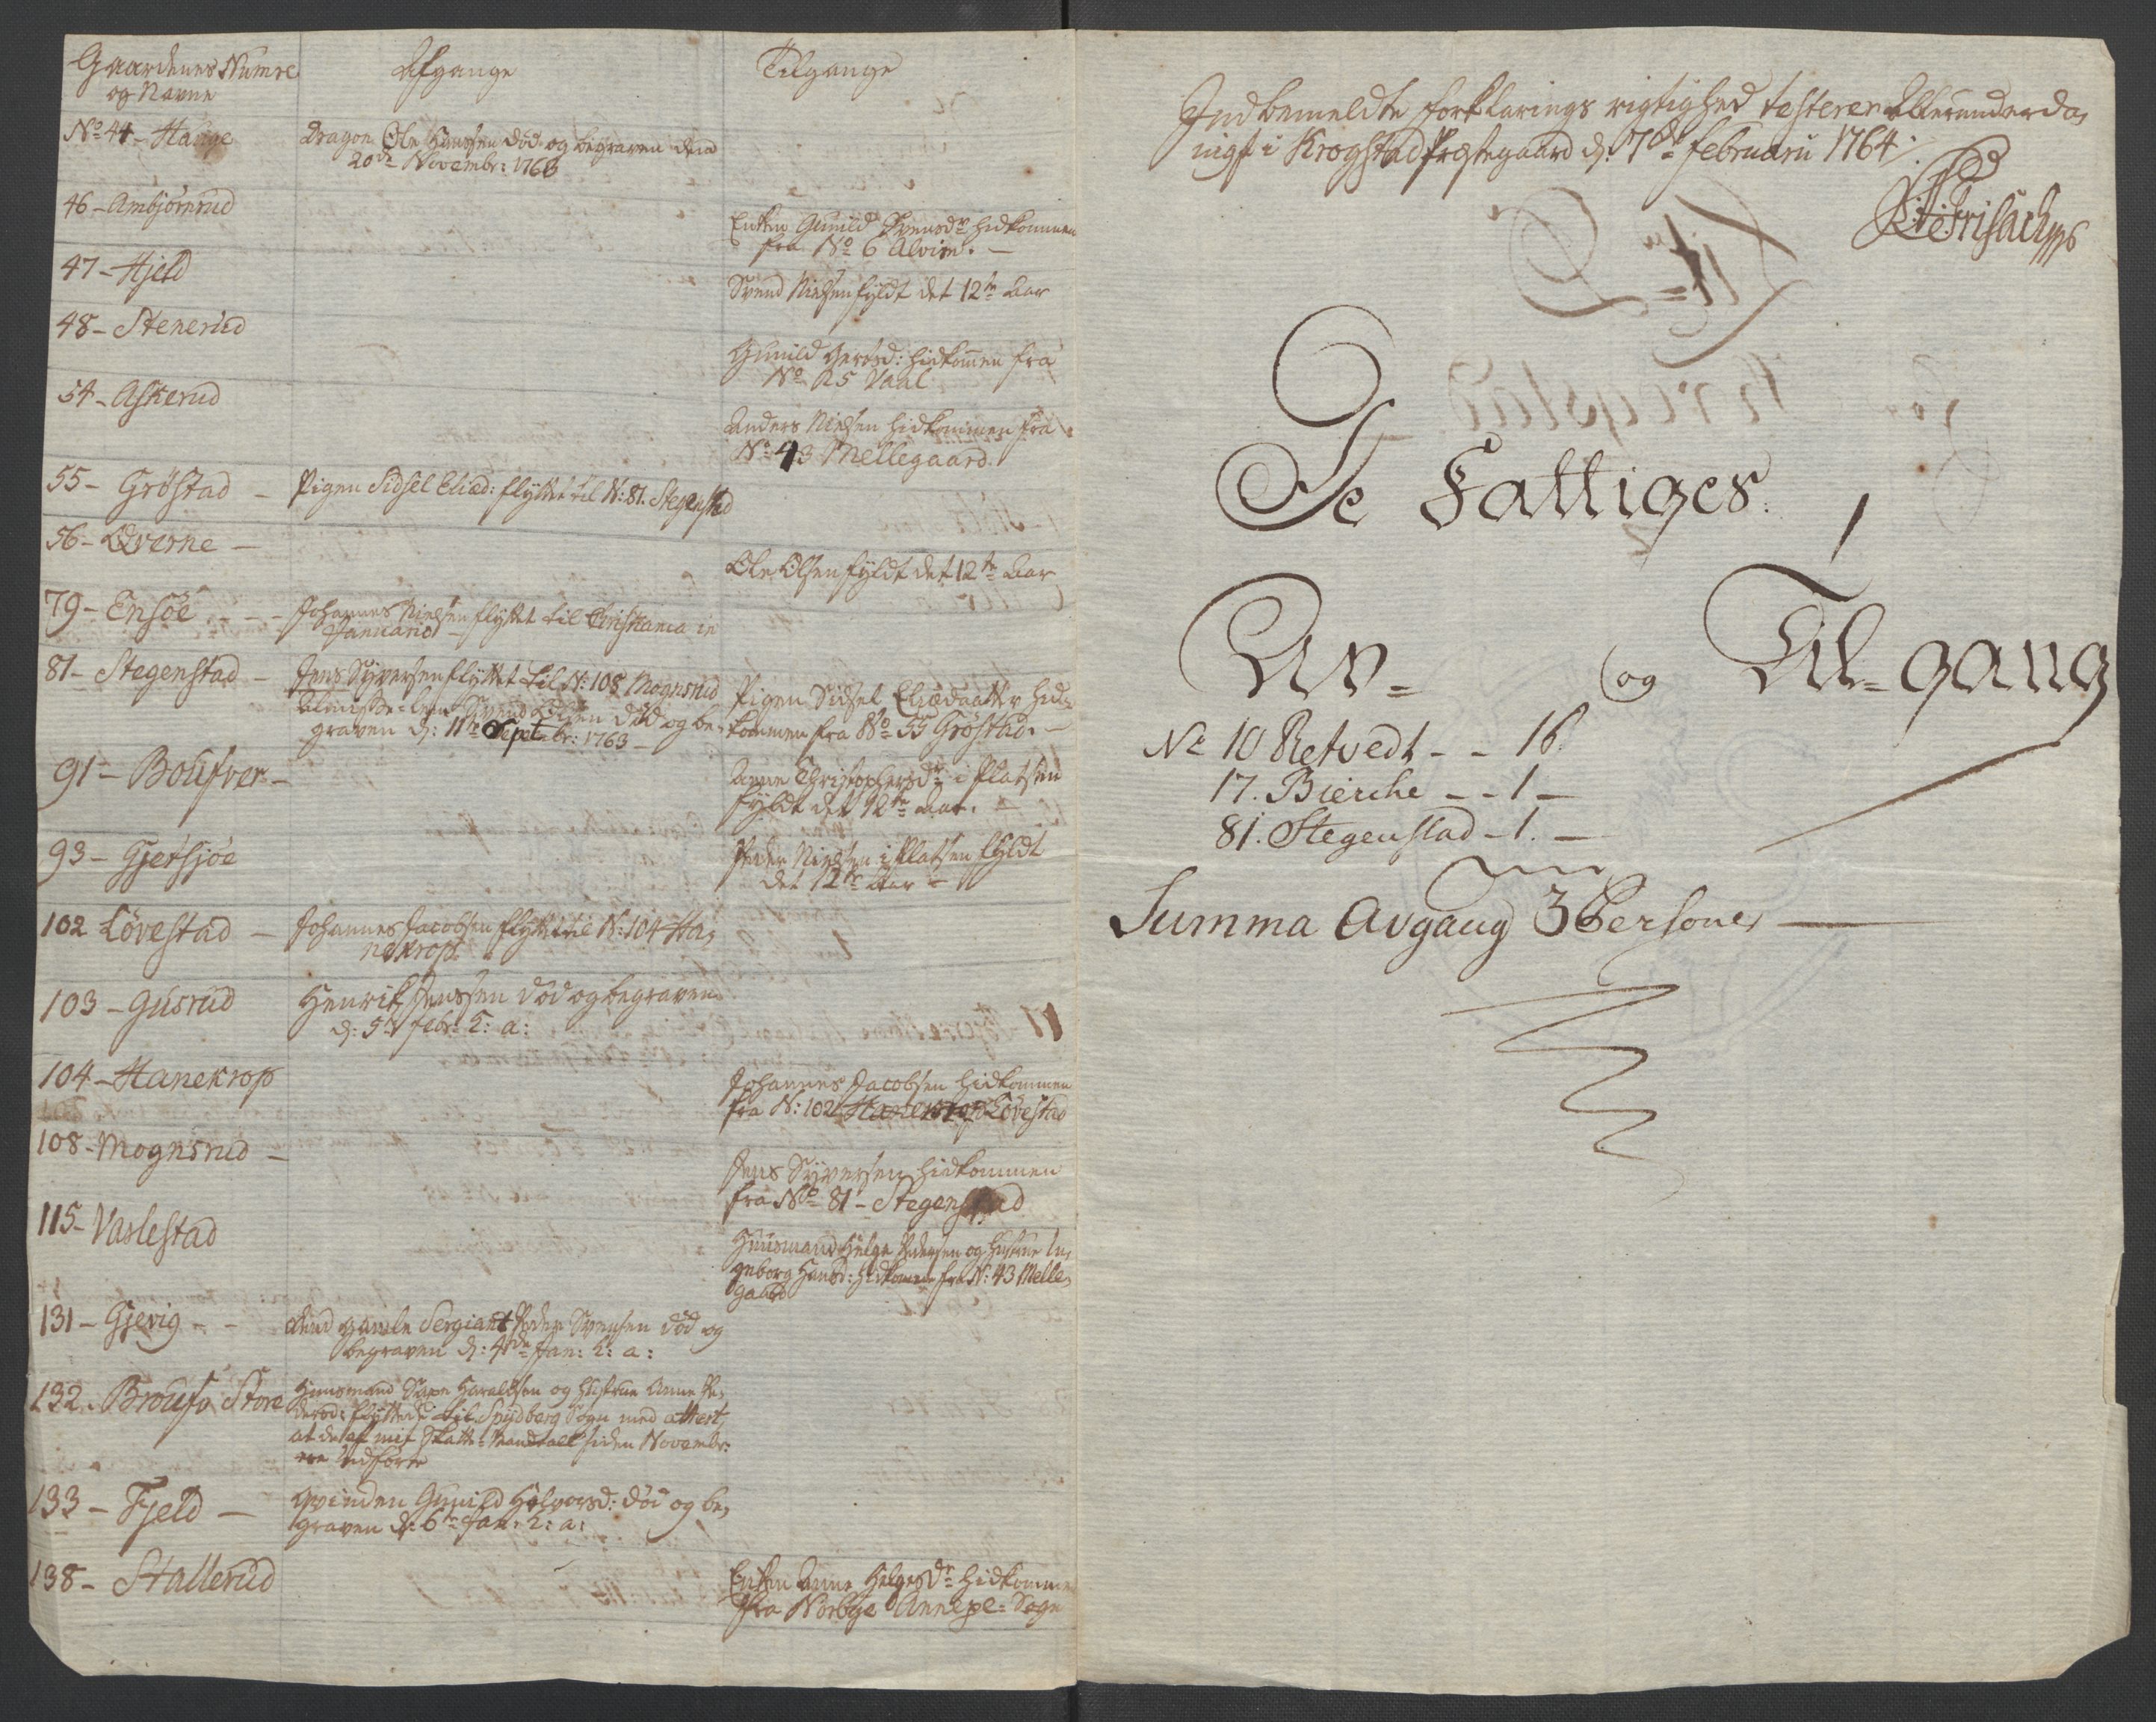 Gaardenes Numre
og Navne
Afgange
Tilgange
No 44 - Hauge
Dragon Ole Hanssen död og begraven den
20de Novembr: 1763
46 - Ambjörnrud
Enken Gunild Svensdr hidkommen
fra No 6 Alvim. -
47 - Hjeld
Svend Nielsen fyldt det 12te Aar
48 - Stenerud
Gunild hidkommen fra
No 25 Vaal
54 - Askerud
Anders Nielsen hidkommen fra
No 43 Mellegaard.
55 - Gröstad -
Pigen Sidsel Eliæd: flyttet til N: 81. Stegenstad
56 - Qverne -
Ole Olsen fyldt det 12te Aar
79 - Ensöe - -
Johannes Nielsen flyttet til Christiania in
Januario -
81 - Stegenstad -
Jens Syversen flyttet til N: 108 Mognsrud
Svend död og be-
graven d: 11te Septembr: 1763 -
Pigen Sidsel Eliædaatter hid-
kommen fra No 55 Gröstad. -
91 - Boufver -
Anne Christophersdr i Platsen
fyldt det 12te Aar. -
93 - Gjersjöe
Peder Nielsen i Platsen fyldt
det 12te Aar -
102 Lövestad -
Johannes Jacobsen flyttet til N: 104 Ha-
nekrop.
103 - Gusrud
Henrik Jenssen död og begraven
d: 5te Febr: h: a:
104 - Hanekrop
Johannes Jacobsen hidkommen
fra N: 102 Hanekrop Lövestad
108 - Mognsrud -
Jens Syversen hidkommen
fra No 81 - Stegenstad
115 - Vaslestad
Huusmand Helge Pedersen og Hustrue In-
geborg Hansd: hidkommen fra N: 43 Melle-
gaard
131 - Gjevig - -
dend gamle Sergiant Peder Svensen död og
begraven d: 4de Jan: h: a:
132 - Broufs Store
Huusmand Haraldsen og Hustrue Anne Pe-
dersd: flyttede til Spydberg Sogn med attest,
at de af mit Skatte-Mandtall siden Novembr:
ere udförte
133 - Fjeld -
Qvinden Gunild Halvorsd: död og be-
graven d: 6te Jan: h: a:
138 - Stallerud
Enken Anne Helgesdr hidkommen
fra Norbye Annexe-Sogn
Indbemeldte forklarings rigtighed testerer Allerunderda-
nigst i Krogstad Præstegaard d: 7de Februarii 1764.
De Fattiges.
Av- og Til-gang
No 10 Retvedt - - 1 ß.
17. Bierche - - 1 -
81. Stegenstad - 1. -
Summa Avgang 3 Personer -